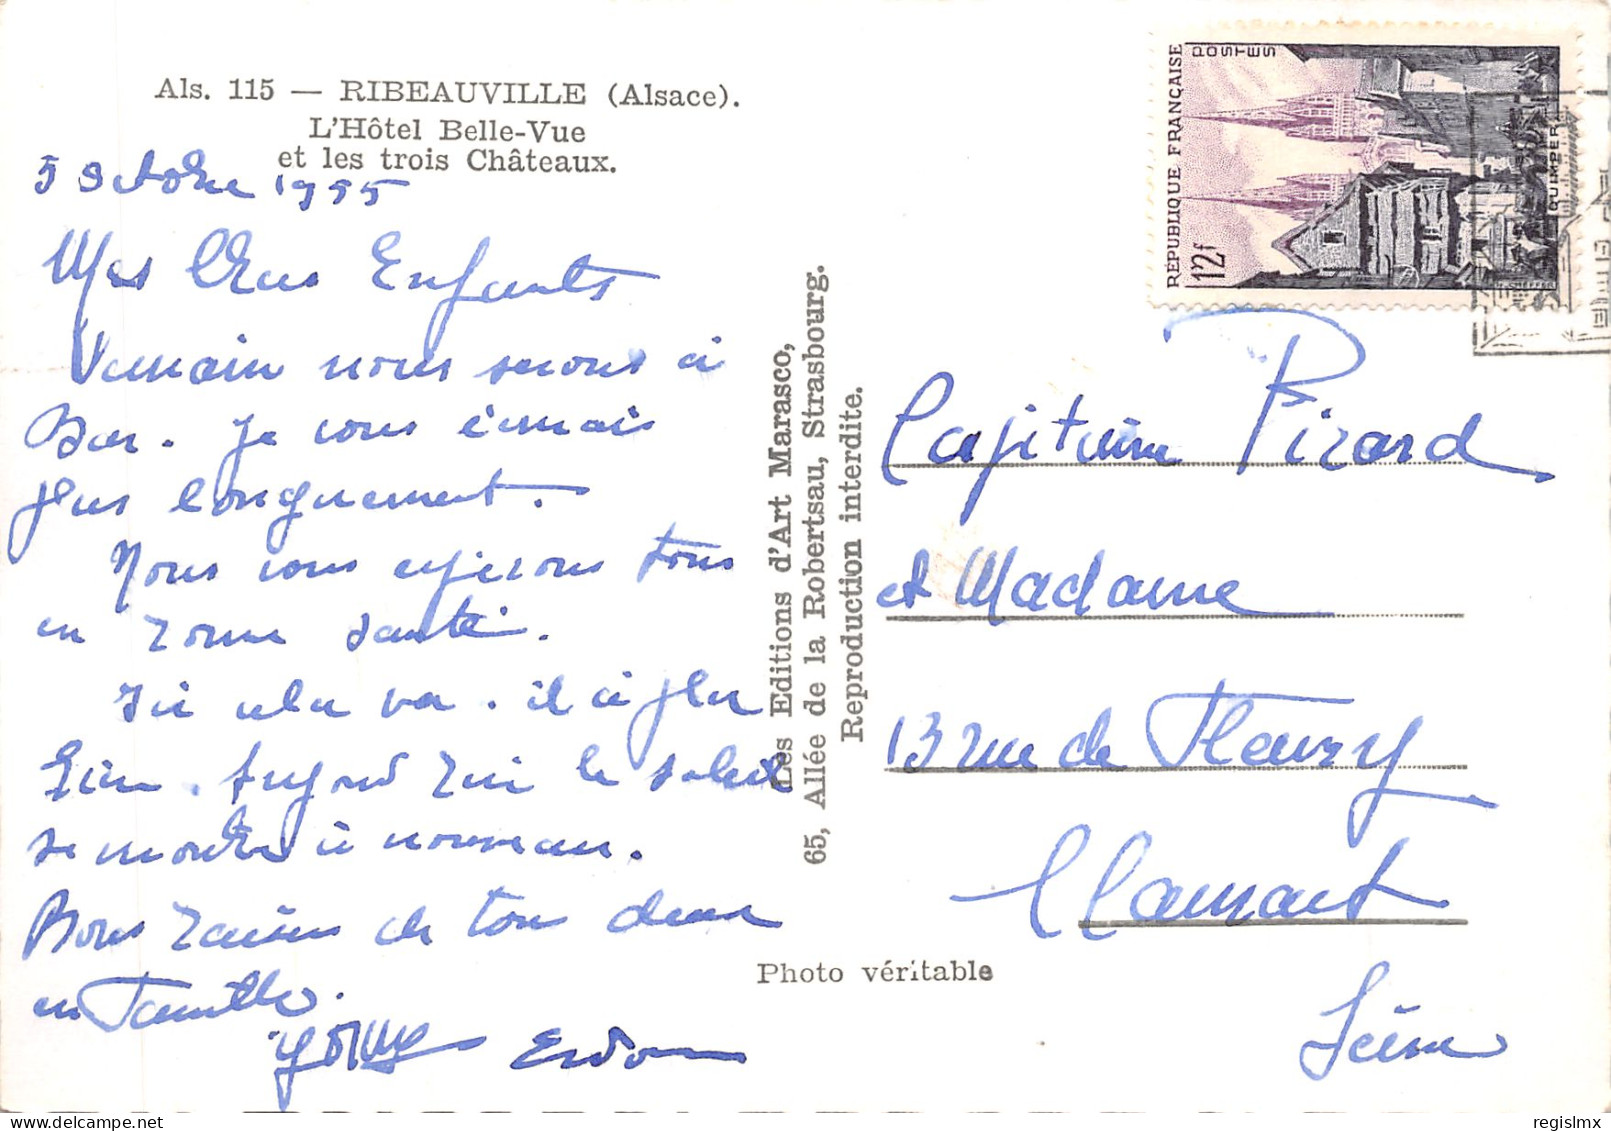 Als. 115 — RIBEAUVILLE (Alsace).
L'Hôtel Belle-Vue
et les trois Châteaux.
5 Octobre 1955
Mes Chers Enfants
Demain nous serons à
Bar. Je vous écrirais
plus longuement.
Nous vous espérons tous
en bonne santé.
Ici cela va. il a plu
hier. Aujourd'hui le soleil
se montre à nouveau.
Bons baisers de tous deux
en famille.
Les Editions d'Art Marasco,
65, Allée de la Robertsau, Strasbourg.
Reproduction interdite.
Photo véritable
REPUBLIQUE FRANÇAISE
POSTES
12f
QUIMPER
Capitaine Pizard
et Madame
13 rue de Fleury
Clamart
Seine
regislmx